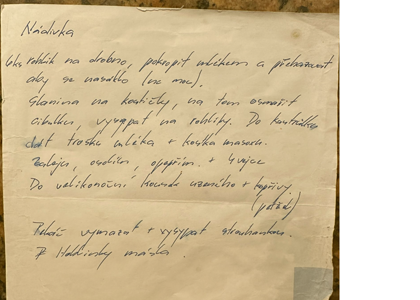 Nádivka
6ks rohlík na drobno, pokropit mlékem a přehazovat
aby se nasáklo (ne moc).
Slanina na kostičky, na tom osmažit
cibulku, vysypat na rohlíky. Do kastrůlku
dát trošku mléka + kostka masox.
Zaleju, osolím, opepřím. + 4 vejce
Do velikonoční kousek uzeného + kopřivy
Pekáč vymazat + vysypat strouhankou.